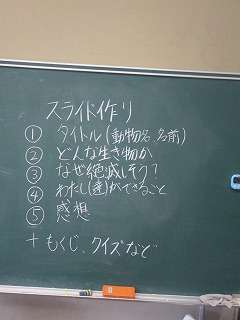 スライド作り
① タイトル(動物名、名前)
② どんな生き物か
③ なぜ絶滅しそう?
④ わたし(達)ができること
⑤ 感想
+ もくじ、クイズなど